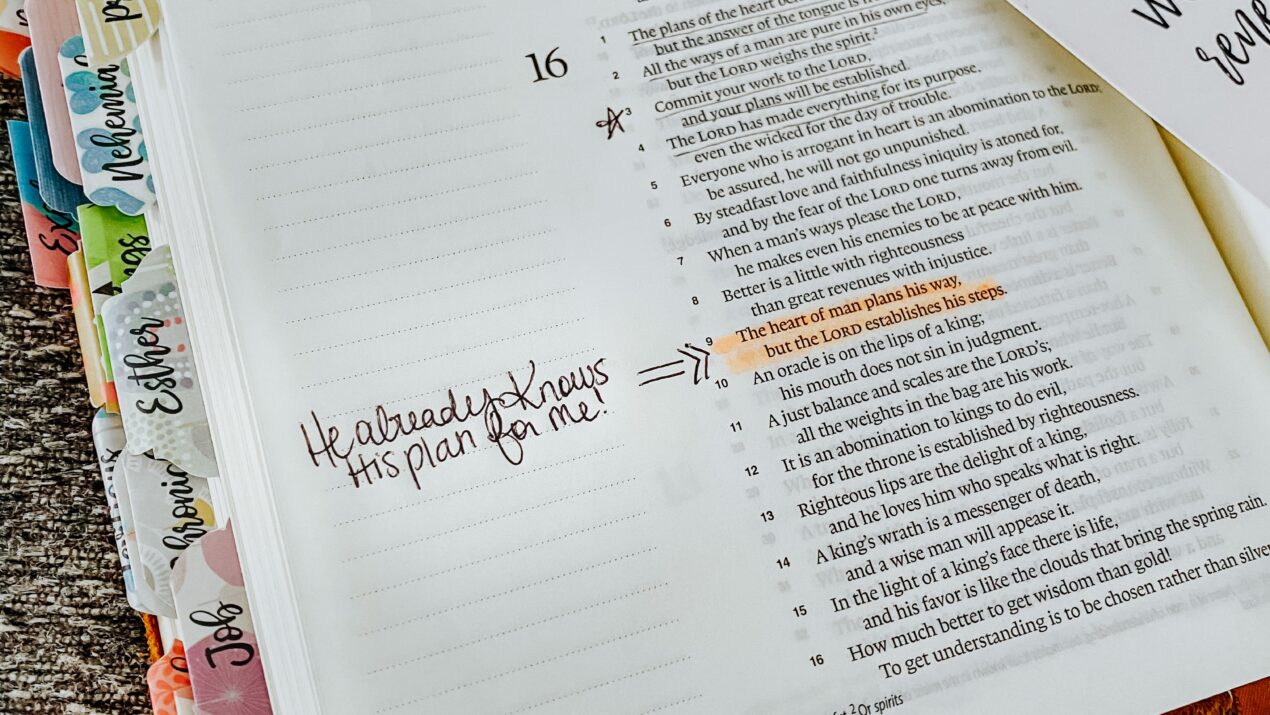 Nehemia
ngs
Esther
hronic
Job
He already knows
His plan for me!
16
1 The plans of the heart
but the answer of the tongue is
2 All the ways of a man are pure in his own eyes,
but the LORD weighs the spirit.²
3 Commit your work to the LORD,
and your plans will be established.
4 The LORD has made everything for its purpose,
even the wicked for the day of trouble.
5 Everyone who is arrogant in heart is an abomination to the LORD;
be assured, he will not go unpunished.
6 By steadfast love and faithfulness iniquity is atoned for,
and by the fear of the LORD one turns away from evil.
7 When a man's ways please the LORD,
he makes even his enemies to be at peace with him.
8 Better is a little with righteousness
than great revenues with injustice.
9 The heart of man plans his way,
but the LORD establishes his steps.
10 An oracle is on the lips of a king;
his mouth does not sin in judgment.
11 A just balance and scales are the LORD's;
all the weights in the bag are his work.
12 It is an abomination to kings to do evil,
for the throne is established by righteousness.
13 Righteous lips are the delight of a king,
and he loves him who speaks what is right.
14 A king's wrath is a messenger of death,
and a wise man will appease it.
15 In the light of a king's face there is life,
and his favor is like the clouds that bring the spring rain.
16 How much better to get wisdom than gold!
To get understanding is to be chosen rather than silver
² Or spirits